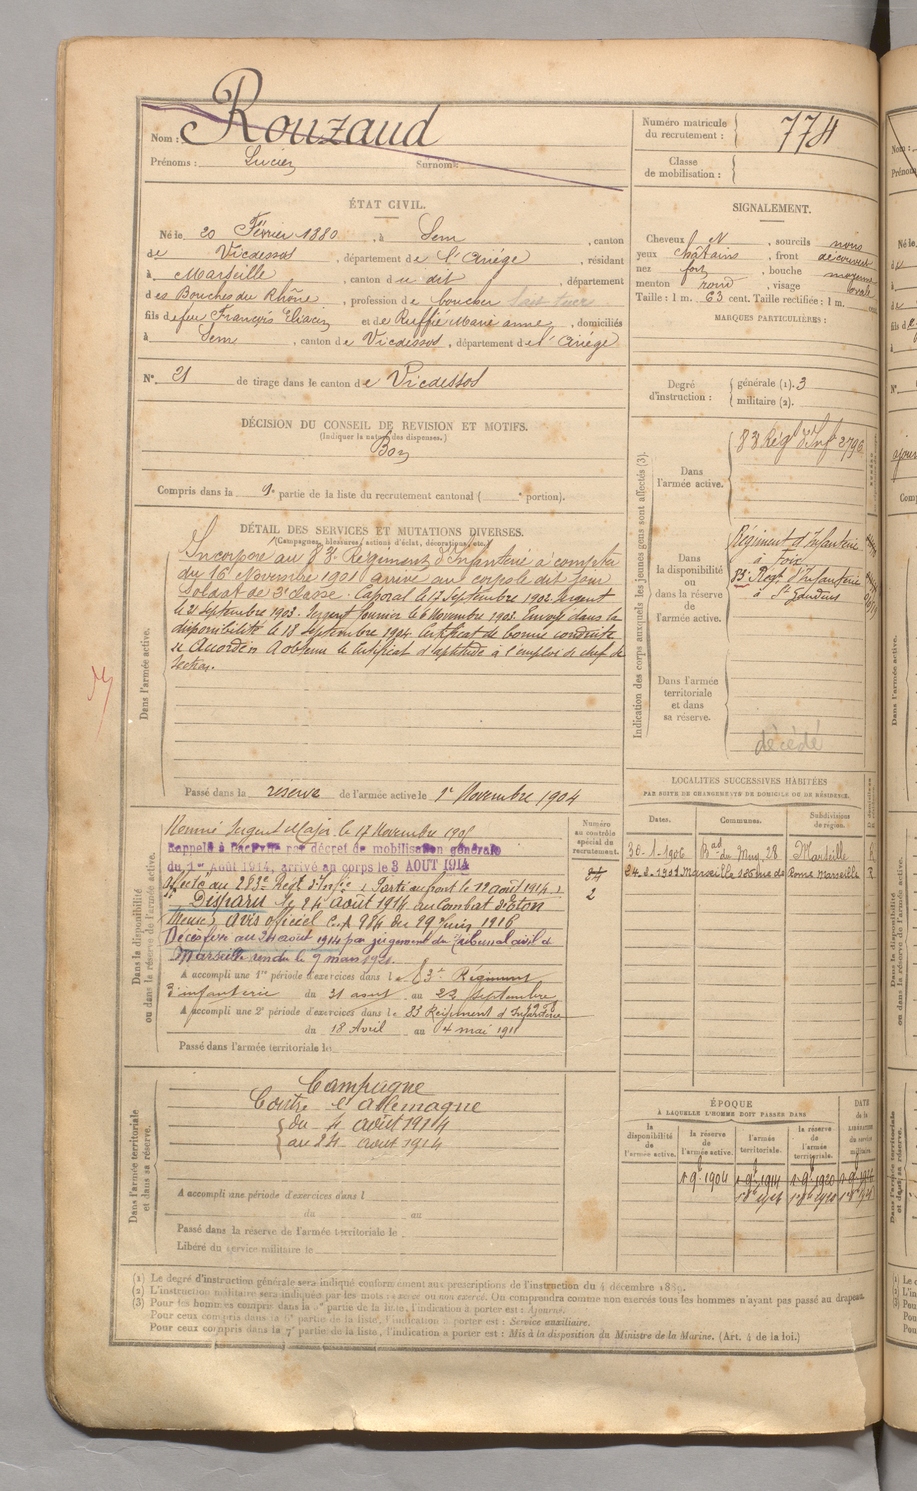 Nom : Rouzaud
Prénoms : Lucien Surnom :
Numéro matricule du recrutement : 774
Classe de mobilisation :
ÉTAT CIVIL.
Né le 20 Février 1880, à Sem, canton
de Vicdessos, département de l'Ariège, résidant
à Marseille, canton du dit, département
des Bouches du Rhône, profession de boucher
fils de feu François Eliacin et de Ruffié Marie anne, domiciliés
à Sem, canton de Vicdessos, département de l'Ariège
N° 21 de tirage dans le canton de Vicdessos
SIGNALEMENT.
Cheveux N, sourcils noirs
yeux châtains, front découvert
nez fort, bouche moyenne
menton rond, visage ovale
Taille : 1 m. 63 cent. Taille rectifiée : 1 m. cent.
MARQUES PARTICULIÈRES :
Degré d'instruction : générale (1). 3
militaire (2).
DÉCISION DU CONSEIL DE REVISION ET MOTIFS.
(Indiquer la nature des dispenses.)
Bon
Compris dans la 1e partie de la liste du recrutement cantonal ( e portion).
DÉTAIL DES SERVICES ET MUTATIONS DIVERSES.
(Campagnes, blessures, actions d'éclat, décorations, etc.)
Dans l'armée active.
Incorporé au 83e Régiment d'Infanterie à compter
du 16 Novembre 1901 arrivé au corps le dit jour
soldat de 2e classe. Caporal le 17 Septembre 1902. Sergent
le 21 septembre 1903. Sergent fourrier le 6 Novembre 1903. Envoyé dans la
disponibilité le 18 septembre 1904. Certificat de bonne conduite
Accordé. A obtenu le Certificat d'aptitude à l'emploi de chef de
Section.
Passé dans la réserve de l'armée active le 1er Novembre 1904
Indication des corps auxquels les jeunes gens sont affectés (3).
Dans l'armée active.
83 Régt d'Infie
Dans la disponibilité ou dans la réserve de l'armée active.
Régiment d'infanterie
à Foix
83e Régt d'Infanterie
à St Gaudens
Dans l'armée territoriale et dans sa réserve.
décédé
Dans la disponibilité ou dans la réserve de l'armée active.
Nommé Sergent Major le 17 Novembre 1905
Rappelé à l'activité par décret de mobilisation générale
du 1er Août 1914, arrivé au corps le 3 AOUT 1914
Affecté au 283e Régt d'Infie. Parti au front le 12 août 1914.
Disparu le 24 août 1914 au Combat d'Eton
(Meuse) avis officiel C.A 984 du 29 Juin 1916
Décès fixé au 24 août 1914 par jugement du Tribunal civil de
Marseille rendu le 9 mars 1921.
A accompli une 1re période d'exercices dans le 83e Régiment
d'infanterie du 31 aout au 22 septembre
A accompli une 2e période d'exercices dans le 83 Régiment d'Infanterie
du 18 Avril au 4 mai 1911
Passé dans l'armée territoriale le
Numéro au contrôle spécial du recrutement.
2
LOCALITÉS SUCCESSIVES HABITÉES
PAR SUITE DE CHANGEMENTS DE DOMICILE OU DE RÉSIDENCE.
Dates. Communes. Subdivisions de région.
30-1-1906 Bad du Muy, 28 Marseille R
Rome Marseille R
Dans l'armée territoriale et dans sa réserve.
Campagne
Contre l'Allemagne
du 4 août 1914
au 24 aout 1914
A accompli une période d'exercices dans l
du au
Passé dans la réserve de l'armée territoriale le
Libéré du service militaire le
ÉPOQUE
À LAQUELLE L'HOMME DOIT PASSER DANS
la disponibilité de l'armée active.
la réserve de l'armée active.
l'armée territoriale.
la réserve de l'armée territoriale.
DATE de la LIBÉRATION du service militaire.
(1) Le degré d'instruction générale sera indiqué conformément aux prescriptions de l'instruction du 4 décembre 1889.
(2) L'instruction militaire sera indiquée par les mots : exercé ou non exercé. On comprendra comme non exercés tous les hommes n'ayant pas passé au drapeau.
(3) Pour les hommes compris dans la 5e partie de la liste, l'indication à porter est : Ajourné.
Pour ceux compris dans la 6e partie de la liste, l'indication à porter est : Service auxiliaire.
Pour ceux compris dans la 7e partie de la liste, l'indication à porter est : Mis à la disposition du Ministre de la Marine. (Art. 4 de la loi.)